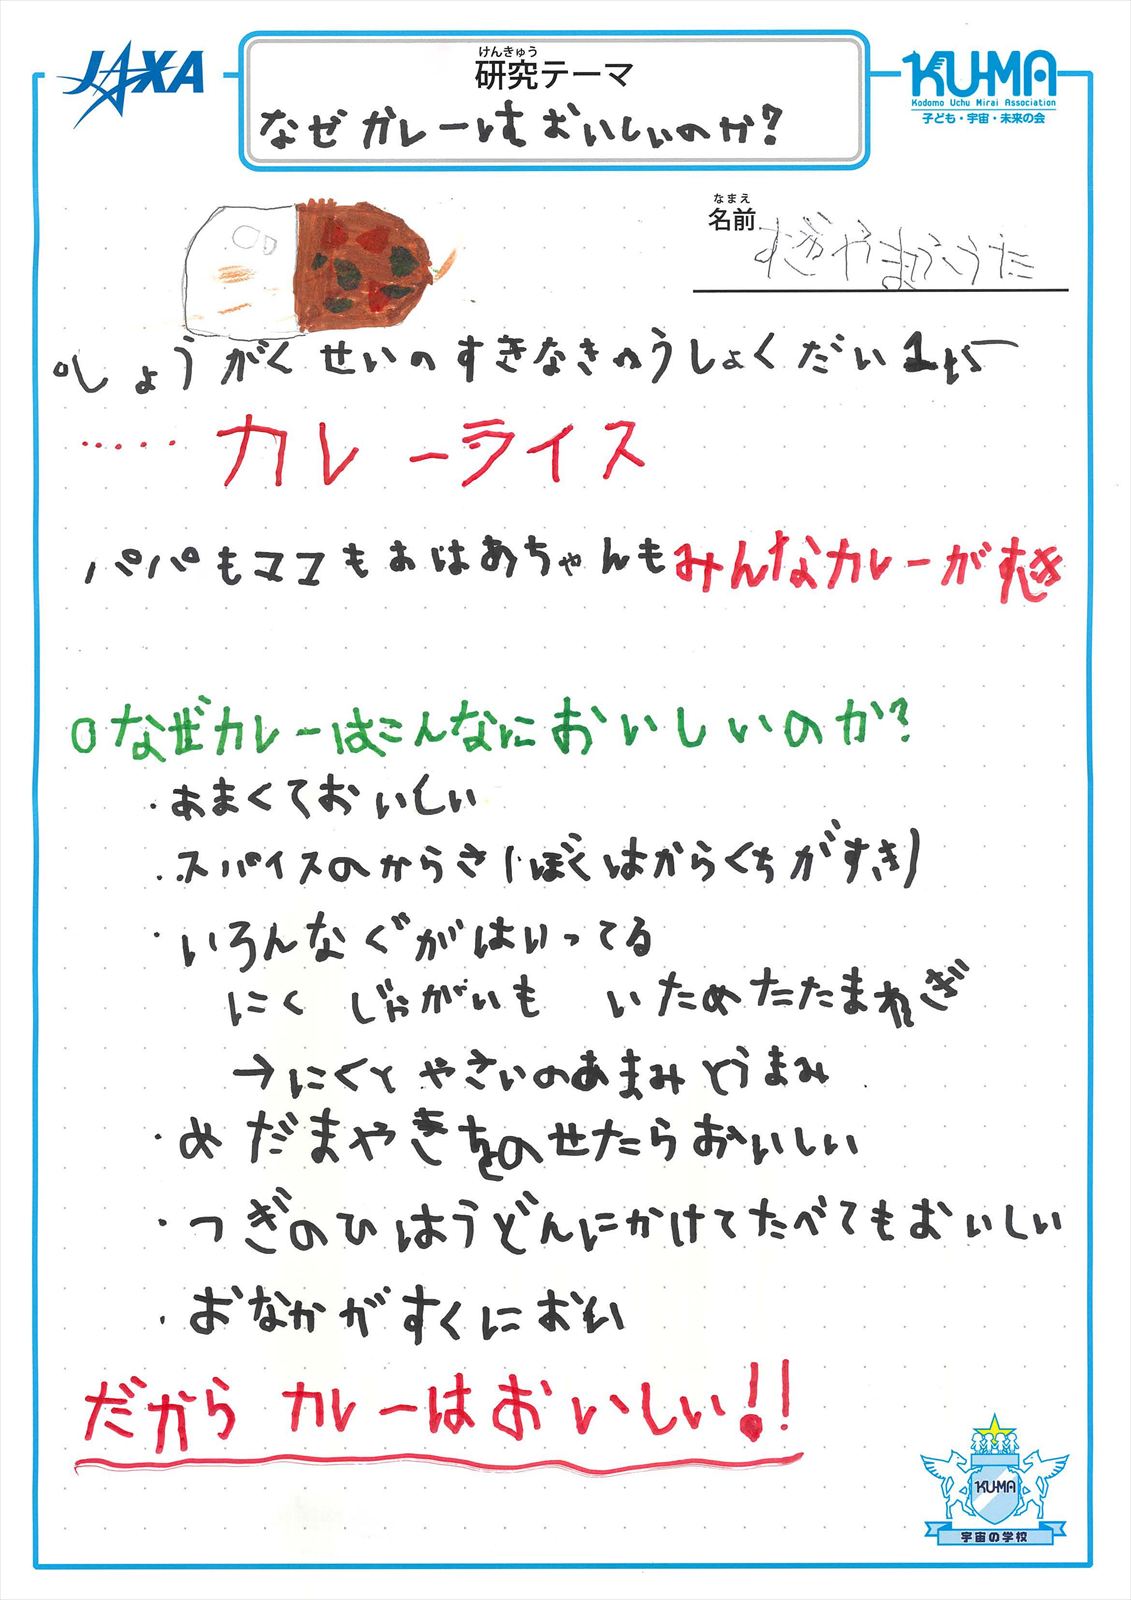 JAXA
けんきゅう
研究テーマ
なぜカレーはおいしいのか?
KU-MA
Kodomo Uchu Mirai Association
子ども・宇宙・未来の会
なまえ
名前
すぎやまふうた
しょうがくせいのすきなきゅうしょくだい1い
・・・・・カレーライス
パパもママもおばあちゃんもみんなカレーがすき
○なぜカレーはこんなにおいしいのか?
・あまくておいしい
・スパイスのからさ(ぼくはからくちがすき)
・いろんなぐがはいってる
にく じゃがいも いためたたまねぎ
→にくとやさいのあまみとうまみ
・めだまやきをのせたらおいしい
・つぎのひはうどんにかけてたべてもおいしい
・おなかがすくにおい
だからカレーはおいしい!!
KU-MA
宇宙の学校